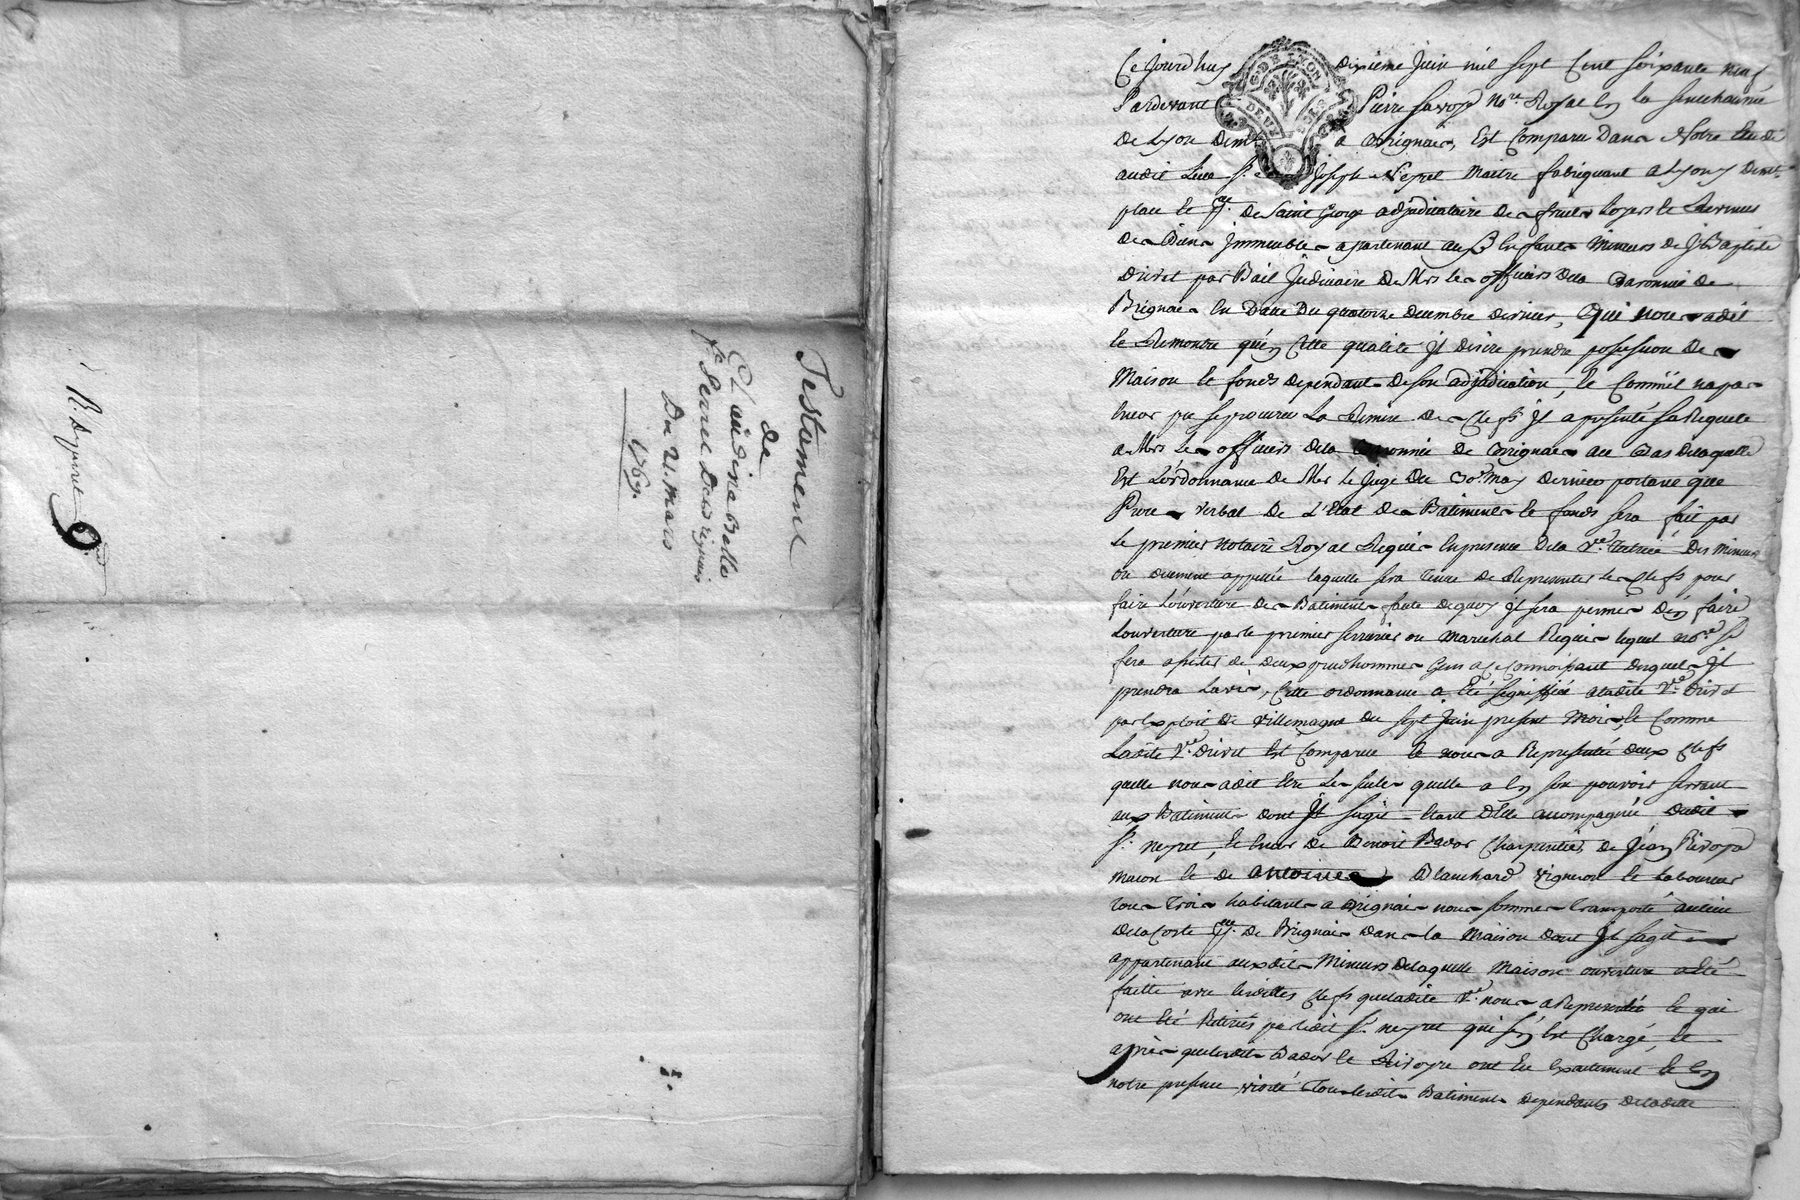 Testament
de
Claudine Belle
fe Servel De Brignais
Du 21. mars
1769.
Ce jourd'huy dixieme juin mil sept Cent soixante neuf
Pardevant Pierre Savoye nore Royal en la senechaussée
de Lyon demt a Brignais, Est Comparu Dans Notre Etude
audit Lieu sr Joseph Neyret Maitre fabriquant a Lyon y demt
place et psse de Saint George adjudicataire des fruits loyers et Revenus
des Biens immeubles apartenant aux Enfants Mineurs de J Baptiste
Drivet par Bail judiciaire de Mrs les officiers dela Baronnie de
Brignais En Date Du quatorze decembre dernier, Qui nous a dit
et Remontré qu'en Cette qualité jl désire prendre possession des
Maison et fonds dependants de son adjudication, et Comme il na pa
Encor pu se procurer La Remise des Clefs jl a presenté sa Requete
a Mrs les officiers dela Baronnie de Brignais au Bas de laquelle
Est L'ordonnance de Mr le Juge du 30e May dernier portant que
Procès verbal de L'Etat des Batiments et fonds sera fait par
le premier notaire Royal Requis En presence dela Ve. Tutrice des Mineurs
ou duement appellée laquelle sera tenue de Representer les Clefs pour
faire Louverture des Batiments faute dequoy jl sera permis d'en faire
Louverture par le premier serrurier ou Marechal Requis lequel nore se
fera assister de deux prudhommes Gens a ce connoissant desquels jl
prendra Lavis, Cette ordonnance a été signiffiée a ladite Ve Drivet
par Exploit de Villemagne du sept juin present Mois, et Comme
Ladite Ve. Drivet Est Comparue et nous a Representé deux Clefs
quelle nous a dit Etre les seules quelle a En son pouvoir servant
aux Batiments dont jl sagit Etant d'Elle accompagnée dudit
sr. neyret, et Encor de Benoit Bador Charpentier, de jean Rivoyre
macon et de antoine Blanchard vigneron et Laboureur
tous trois habitants a Brignais nous sommes transporté au lieu
dela Coste psse. de Brignais dans la Maison dont jl sagit
appartenant auxdits Mineurs delaquelle Maison ouverture a Eté
faitte avec lesdittes Clefs que ladite Ve. nous a Representé et qui
ont été Retirés par ledit sr. neyret qui s'en Est Chargé, et
après que lesdits Bador et Rivoyre ont Eu Exactement et En
notre presence visité tous lesdits Batiments dependants de ladite